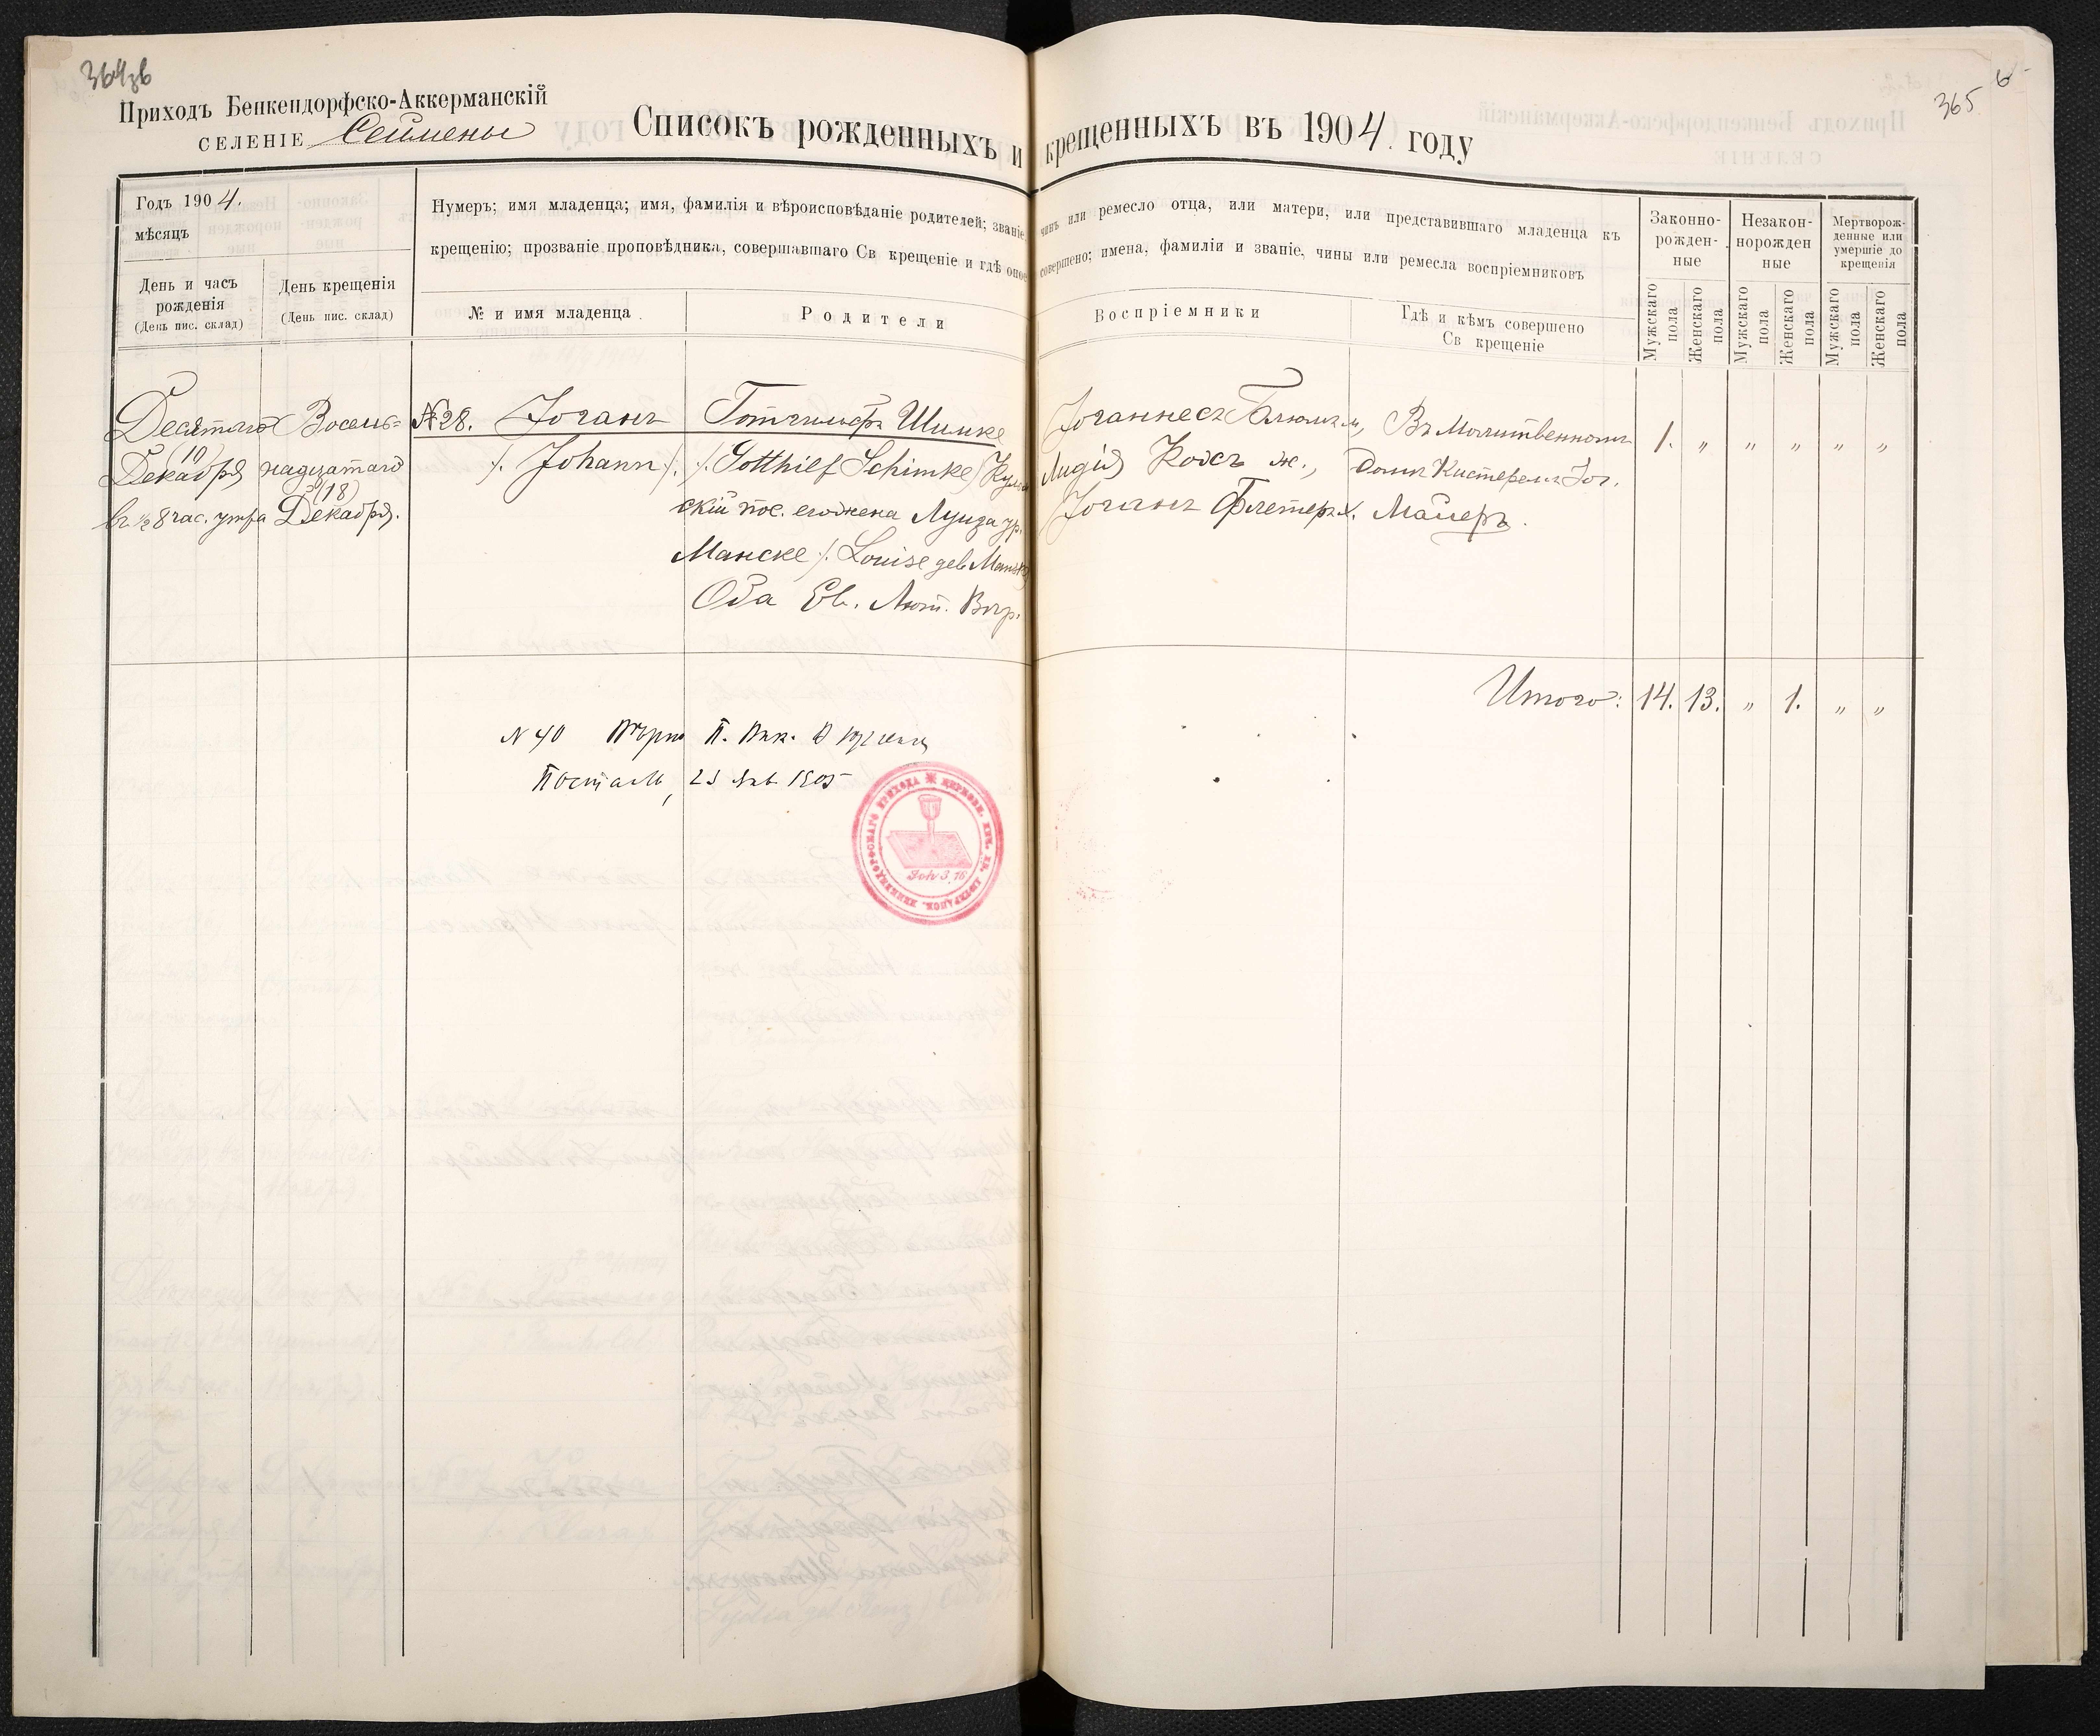 364об
Приходъ Бенкендорфско-Аккерманскій
СЕЛЕНІЕ Сеймены
Списокъ рожденныхъ и крещенныхъ въ 1904. году
365
6
Годъ 1904.
мѣсяцъ
День и часъ
рожденія
(День пис. склад)
День крещенія
(День пис. склад)
Нумеръ; имя младенца; имя, фамилія и вѣроисповѣданіе родителей; званіе, чинъ или ремесло отца, или матери, или представившаго младенца къ
крещенію; прозваніе проповѣдника, совершавшаго Св крещеніе и гдѣ оное совершено; имена, фамиліи и званіе, чины или ремесла воспріемниковъ
№ и имя младенца
Родители
Воспріемники
Гдѣ и кѣмъ совершено
Св крещеніе
Законно-
рожден-
ные
Незакон-
норожден
ные
Мертворож-
денные или
умершіе до
крещенія
Мужскаго пола
Женскаго пола
Мужскаго пола
Женскаго пола
Мужскаго пола
Женскаго пола
Десятаго
(10)
Декабря
въ ½ 8 час. утра
Восемь=
надцатаго
(18)
Декабря.
№ 28. Іоганъ
/. Johann /.
Готгильфъ Шимке
/. Gotthilf Schimke /
скій пос. его жена Луиза ур.
Манске /. Louise geb Manske
Оба Ев. Лют. Вѣр.
Іоганнесъ м,
Лидія Кохъ ж.,
Іоганъ х.
Въ Молитвенномъ
Домѣ Кистеремъ Іог.
Майеръ.
1. " " " " "
Итого: 14. 13. " 1. " "
N 40
Посталь, 23 Янв 1905
ЦЕРКОВН. ЕВ. ЛЮТЕРАНСК. БЕНКЕНДОРФСКАГО ПРИХОДА
Joh 3. 16